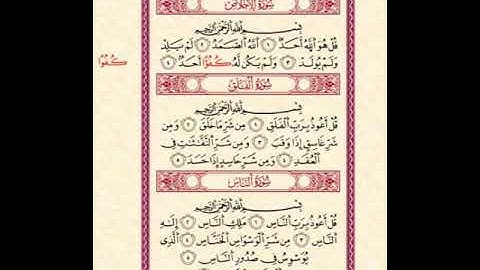 سُورَةُ الإِخْلَاصِ
بِسْمِ اللَّهِ الرَّحْمَٰنِ الرَّحِيمِ
قُلْ هُوَ اللَّهُ أَحَدٌ ١ اللَّهُ الصَّمَدُ ٢ لَمْ يَلِدْ
وَلَمْ يُولَدْ ٣ وَلَمْ يَكُن لَّهُ كُفُؤًا أَحَدٌ ٤
كُفُؤًا
سُورَةُ الْفَلَقِ
بِسْمِ اللَّهِ الرَّحْمَٰنِ الرَّحِيمِ
قُلْ أَعُوذُ بِرَبِّ الْفَلَقِ ١ مِن شَرِّ مَا خَلَقَ ٢ وَمِن
شَرِّ غَاسِقٍ إِذَا وَقَبَ ٣ وَمِن شَرِّ النَّفَّٰثَٰتِ فِي
الْعُقَدِ ٤ وَمِن شَرِّ حَاسِدٍ إِذَا حَسَدَ ٥
سُورَةُ النَّاسِ
بِسْمِ اللَّهِ الرَّحْمَٰنِ الرَّحِيمِ
قُلْ أَعُوذُ بِرَبِّ النَّاسِ ١ مَلِكِ النَّاسِ ٢ إِلَٰهِ
النَّاسِ ٣ مِن شَرِّ الْوَسْوَاسِ الْخَنَّاسِ ٤ الَّذِي
يُوَسْوِسُ فِي صُدُورِ النَّاسِ ٥